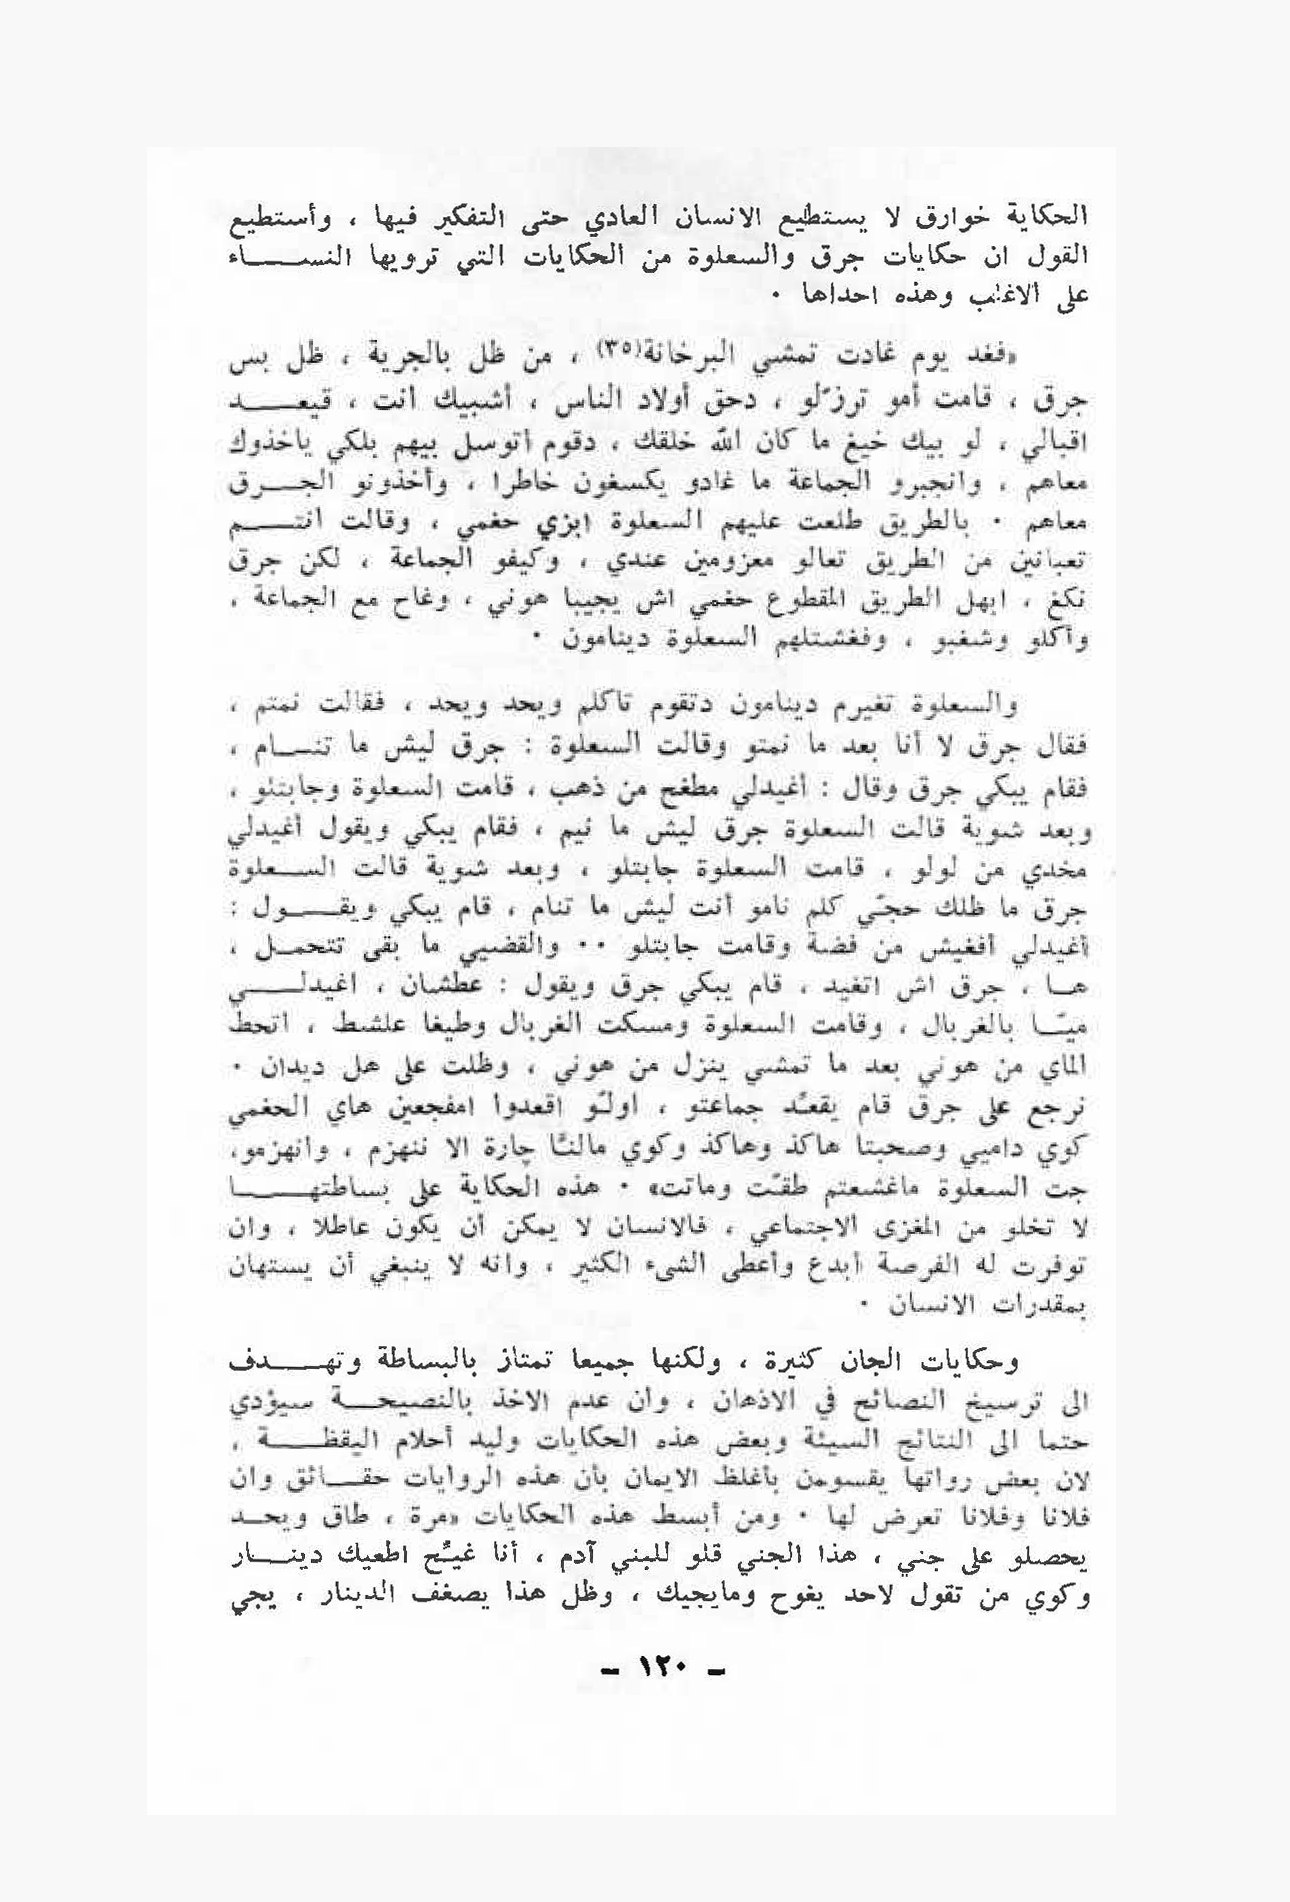 الحكاية خوارق لا يستطيع الانسان العادي حتى التفكير فيها ، وأستطيع
القول ان حكايات جرق والسعلوة من الحكايات التي ترويها النســـاء
على الاغلب وهذه احداها .
«فغد يوم غادت تمشي البرخانة(٣٥) ، من ظل بالجرية ، ظل بس
جرق ، قامت أمو ترزّلو ، دحق أولاد الناس ، أشبيك أنت ، قيعـــد
اقبالي ، لو بيك خيغ ما كان الله خلقك ، دقوم أتوسل بيهم بلكي ياخذوك
معاهم ، وانجبرو الجماعة ما غادو يكسغون خاطرا ، وأخذونو الجــرق
معاهم . بالطريق طلعت عليهم السعلوة ابزي حغمي ، وقالت انتـــم
تعبانين من الطريق تعالو معزومين عندي ، وكيفو الجماعة ، لكن جرق
نكغ ، ابهل الطريق المقطوع حغمي اش يجيبا هوني ، وغاح مع الجماعة ،
وأكلو وشغبو ، وفغشتلهم السعلوة دينامون .
والسعلوة تغيرم دينامون دتقوم تاكلم ويحد ويحد ، فقالت نمتم ،
فقال جرق لا أنا بعد ما نمتو وقالت السعلوة : جرق ليش ما تنــام ،
فقام يبكي جرق وقال : أغيدلي مطغح من ذهب ، قامت السعلوة وجابتلو ،
وبعد شوية قالت السعلوة جرق ليش ما نيم ، فقام يبكي ويقول أغيدلي
مخدي من لولو ، قامت السعلوة جابتلو ، وبعد شوية قالت الســعلوة
جرق ما ظلك حجّي كلم نامو أنت ليش ما تنام ، قام يبكي ويقـــول :
أغيدلي أفغيش من فضة وقامت جابتلو .. والقضيي ما بقى تتحمــل ،
هــا ، جرق اش اتغيد ، قام يبكي جرق ويقول : عطشان ، اغيدلـــي
ميّــا بالغربال ، وقامت السعلوة ومسكت الغربال وطيغا علشط ، اتحط
الماي من هوني بعد ما تمشي ينزل من هوني ، وظلت على هل ديدان .
نرجع على جرق قام يقعّد جماعتو ، اولّو اقعدوا امفجعين هاي الحغمي
كوي داميي وصحبتا هاكذ وهاكذ وكوي مالنّا چارة الا ننهزم ، وانهزمو،
جت السعلوة ماغشعتم طقّت وماتت» . هذه الحكاية على بساطتهـــا
لا تخلو من المغزى الاجتماعي ، فالانسان لا يمكن أن يكون عاطلا ، وان
توفرت له الفرصة أبدع وأعطى الشىء الكثير ، وانه لا ينبغي أن يستهان
بمقدرات الانسان .
وحكايات الجان كثيرة ، ولكنها جميعا تمتاز بالبساطة وتهـــدف
الى ترسيخ النصائح في الاذهان ، وان عدم الاخذ بالنصيحــة سيؤدي
حتما الى النتائج السيئة وبعض هذه الحكايات وليد أحلام اليقظـــة ،
لان بعض رواتها يقسومن بأغلظ الايمان بأن هذه الروايات حقــائق وان
فلانا وفلانا تعرض لها . ومن أبسط هذه الحكايات «مرة ، طاق ويحــد
يحصلو على جني ، هذا الجني قلو للبني آدم ، أنا غيّح اطعيك دينـــار
وكوي من تقول لاحد يغوح ومايجيك ، وظل هذا يصغف الدينار ، يجي
– ١٢٠ –